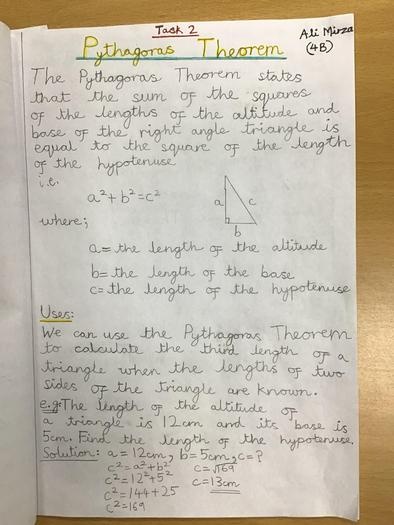 Task 2
Ali Mirza
(4B)
Pythagoras Theorem
The Pythagoras Theorem states
that the sum of the squares
of the lengths of the altitude and
base of the right angle triangle is
equal to the square of the length
of the hypotenuse
i.e.
a²+b²=c²
a c
b
where;
a= the length of the altitude
b= the length of the base
c= the length of the hypotenuse
Uses:
We can use the Pythagoras Theorem
to calculate the third length of a
triangle when the lengths of two
sides of the triangle are known.
e.g: The length of the altitude of
a triangle is 12cm and its base is
5cm. Find the length of the hypotenuse.
Solution: a = 12cm, b = 5cm, c = ?
c²=a²+b² c=√169
c²=12²+5² c=13cm
c²=144+25
c²=169